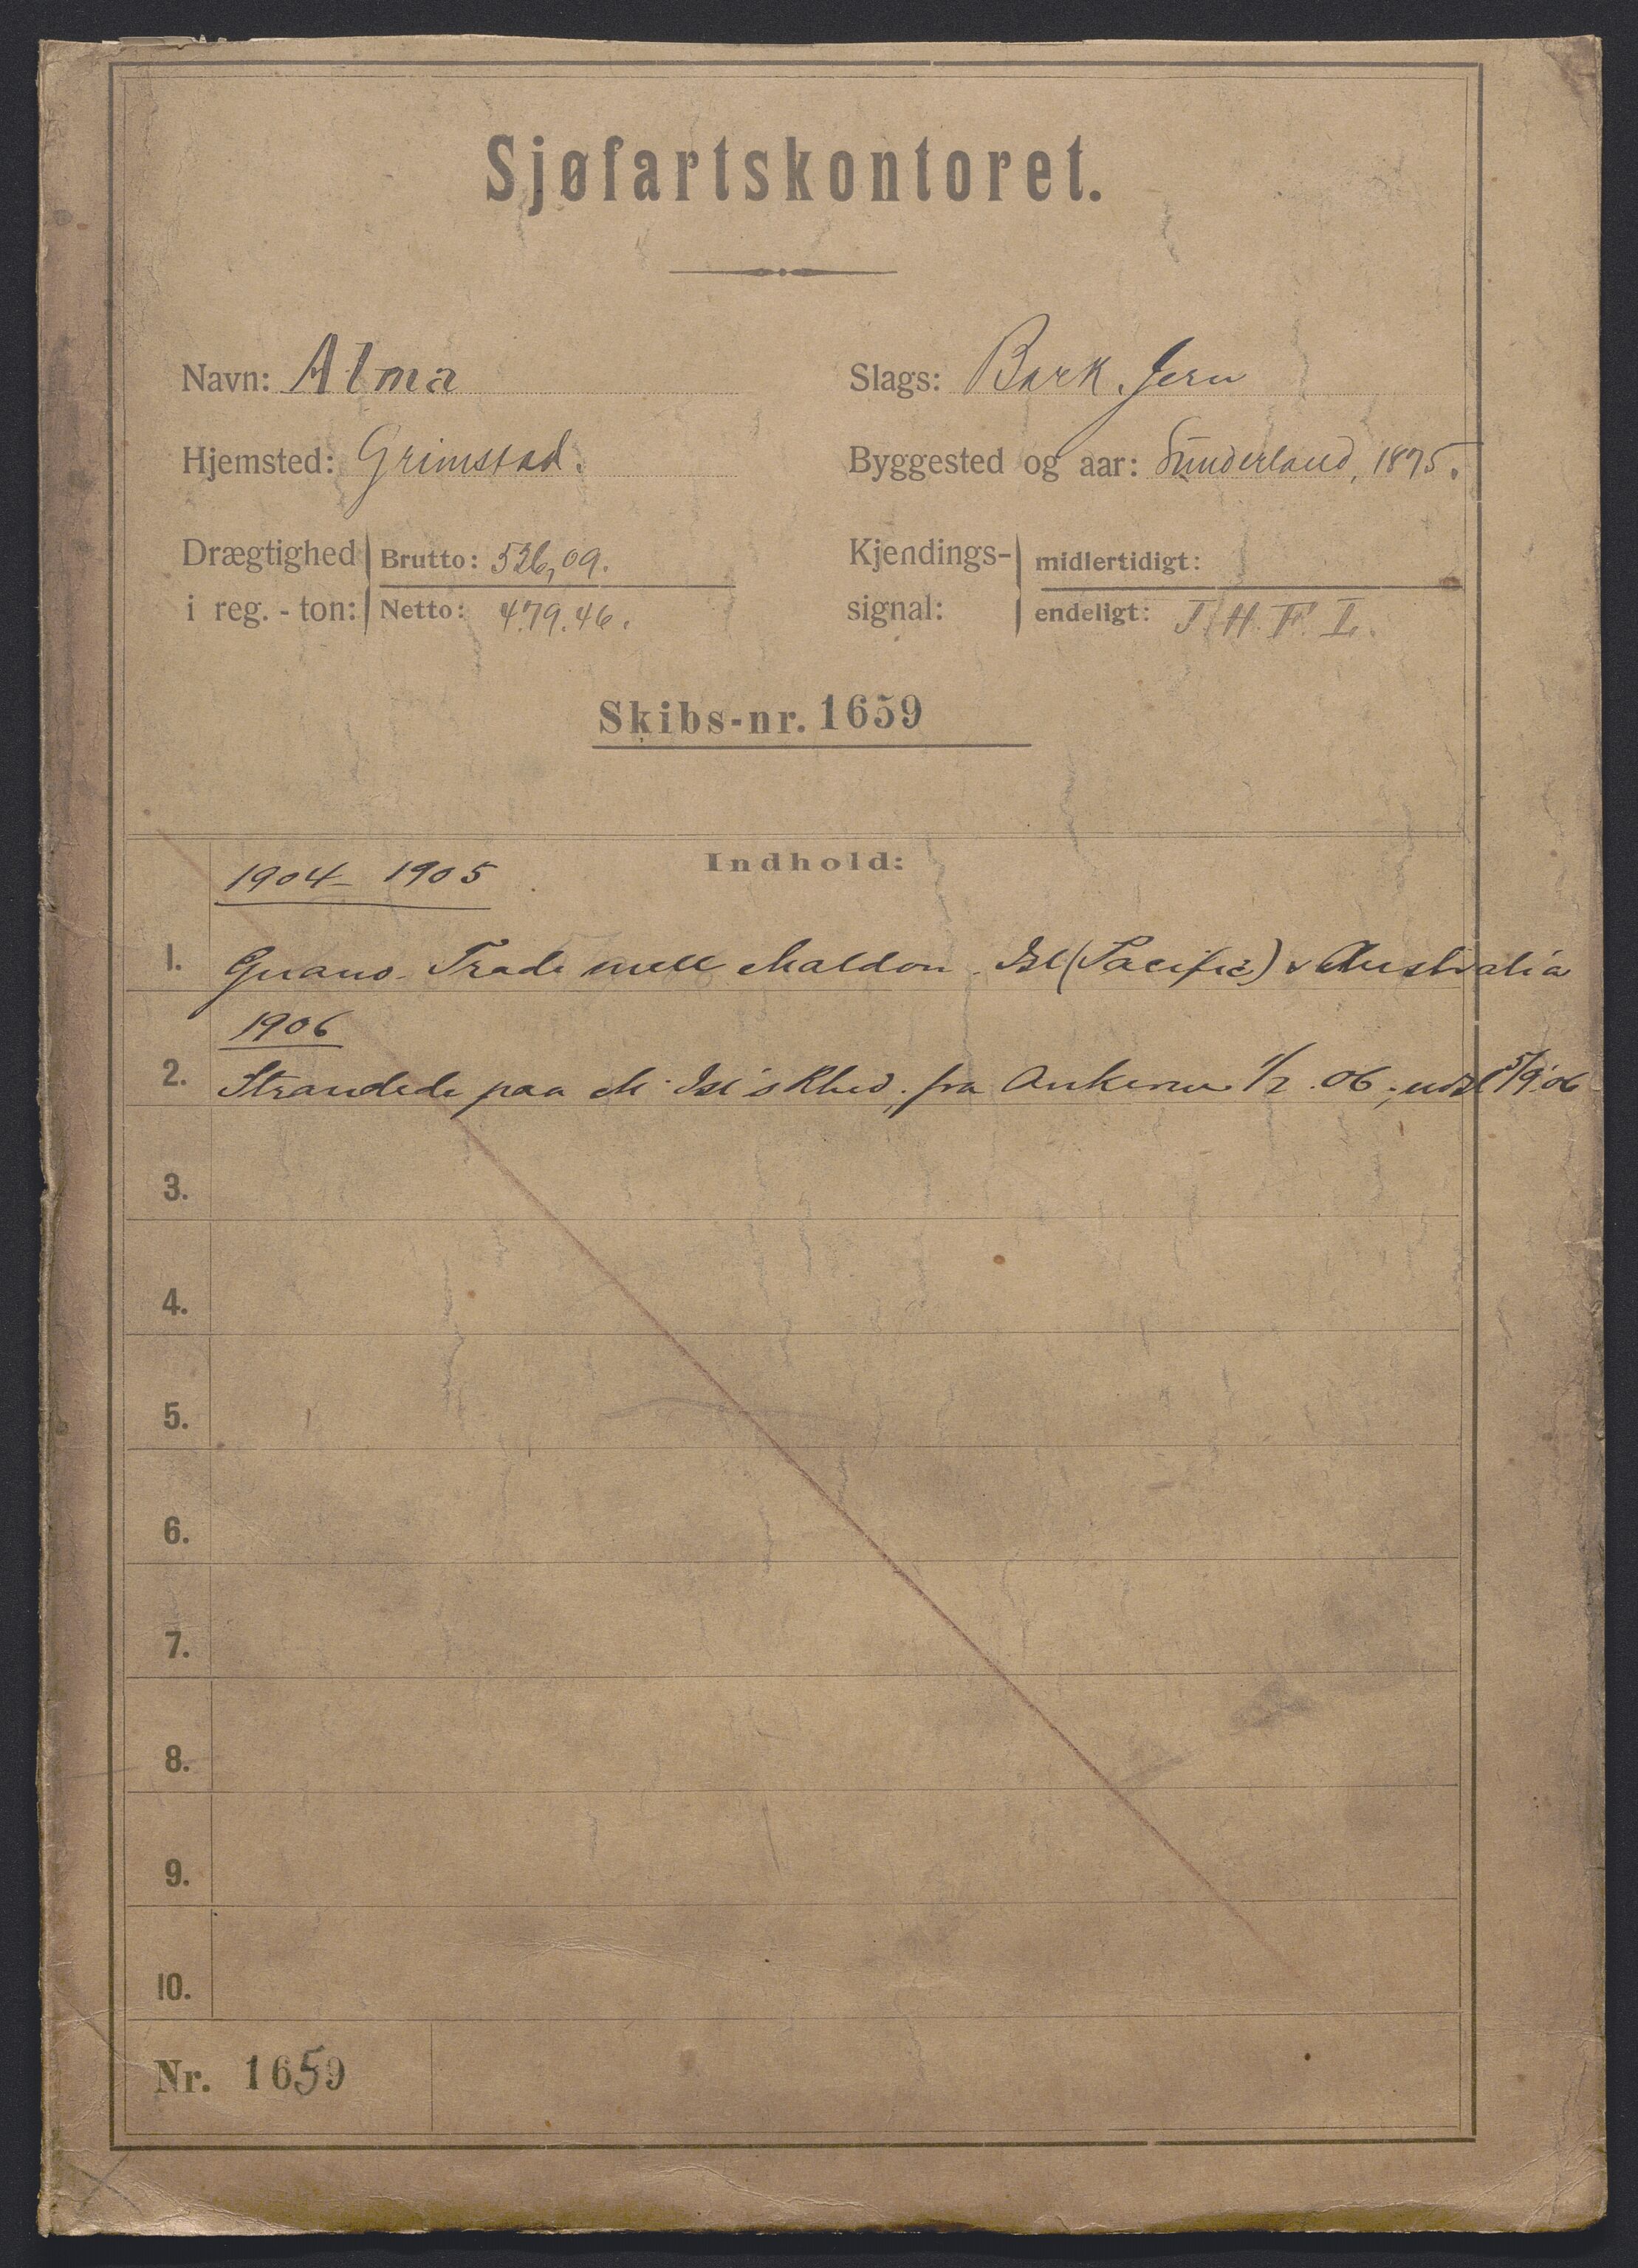 Sjøfartskontoret.
Navn: Alma
Slags: Bark. Jern
Hjemsted: Grimstad.
Byggested og aar: Sunderland, 1875.
Drægtighed i reg. - ton:
Brutto: 526,09.
Netto: 479.46.
Kjendings- signal:
midlertidigt:
endeligt: J. H. F. L.
Skibs-nr. 1659
Indhold:
1904- 1905
1. Guano- Trade mell Maldon. Isl (Pacific) & Australia
1906
2. Strandede paa M. Isl's Rhed, fra Ankerne 1/2 .06; udsl 5/9.06
3.
4.
5.
6.
7.
8.
9.
10.
Nr. 1659